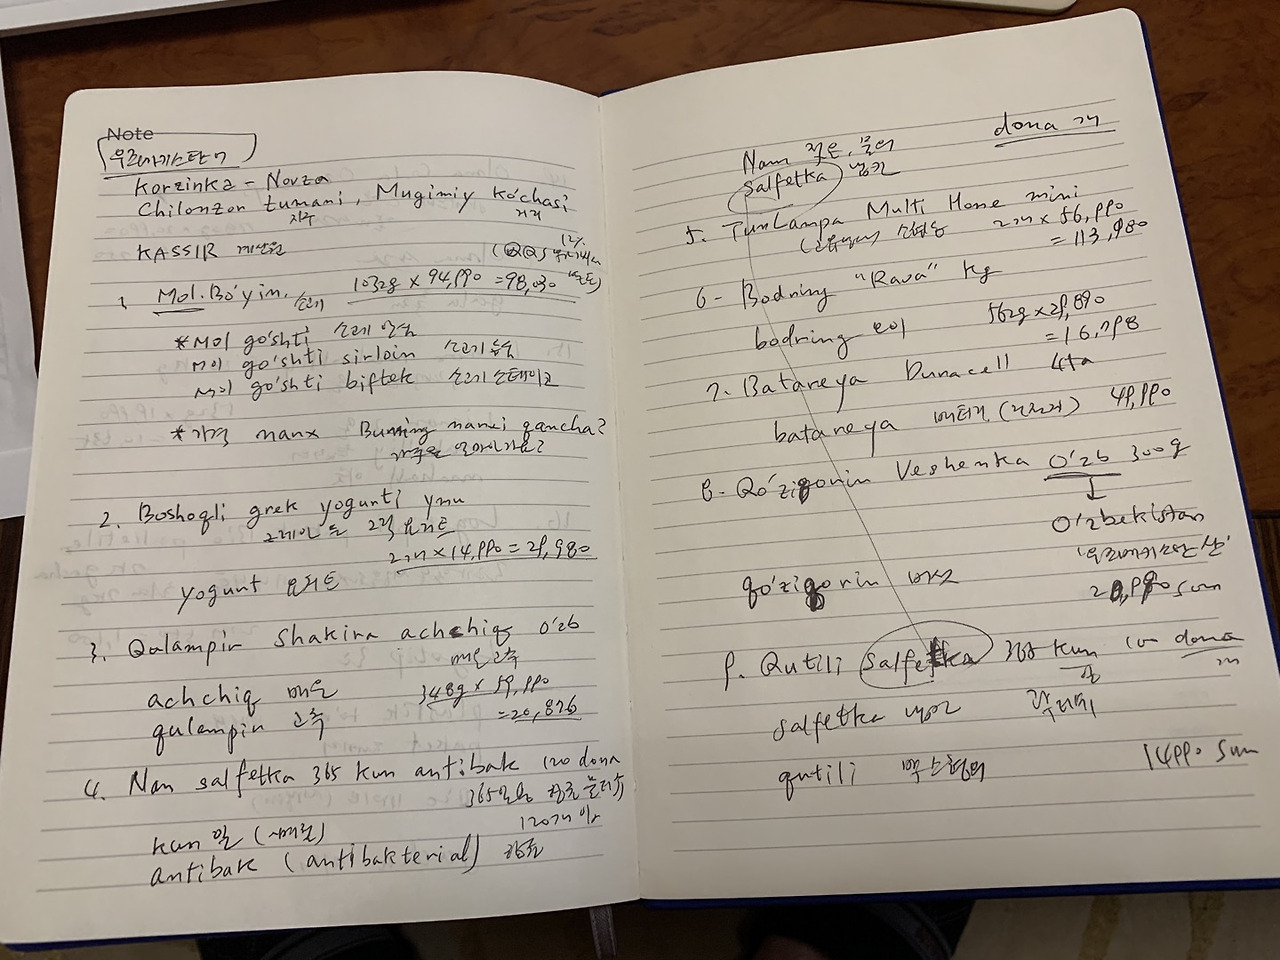 Note
우즈베키스탄어
Korzinka - Novza
Chilonzor tumani, Mugimiy ko'chasi
지구 거리
KASSIR 계산원
(QQS 부가세 12%
1. Mol. Bo'yin. 소고기 1032g x 94,990 = 98,030
*Mol go'shti 소고기
Mol go'shti sirloin 소고기 등심
Mol go'shti biftek 소고기 스테이크
*가격 narx Buning narxi qancha?
가격은 얼마인가요?
2. Boshoqli grek yogurti
그레인 그릭 요거트
2개 x 14,990 = 29,980
yogurt 요거트
3. Qalampir Shakira achchiq O'zb
매운 고추
achchiq 매운 348g x 59,990
qalampir 고추 = 20,876
4. Nam salfetka 365 kun antibak 120 dona
365일용 항균 물티슈
kun 일 (세는) 120개
antibak (antibakterial) 항균
dona 개
Nam 젖은, 물의
Salfetka 냅킨
5. TunLampa Multi Home mini
2개 x 56,990
= 113,980
6- Bodring "Rava" kg
bodring 오이 562g x 29,890
= 16,798
7. Batareya Duracell 4ta
batareya 배터리 (건전지) 49,990
8- Qo'ziqorin Veshenka O'zb 300g
O'zbekistan
'우즈베키스탄산'
qo'ziqorin 버섯 20,990 sum
9. Qutili salfetka 365 kun 100 dona
일 개
salfetka 냅킨 각티슈
qutili 박스형의 14990 sum